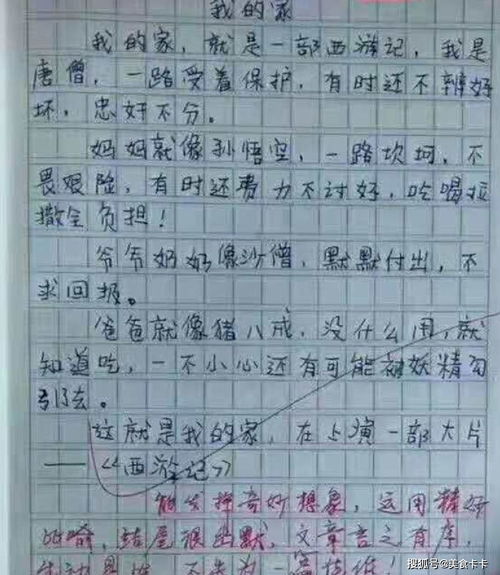 我的家
我的家，就是一部西游记，我是
唐僧，一路受着保护，有时还不辨好
坏，忠奸不分。
妈妈就像孙悟空，一路坎坷，不
畏艰险，有时还费力不讨好，吃喝拉
撒全负担！
爷爷奶奶像沙僧，默默付出，不
求回报。
爸爸就像猪八戒，没什么用，就
知道吃，一不小心还有可能被妖精勾
引去。
这就是我的家，在上演一部大片
——《西游记》
能发挥奇妙想象，运用精妙
的比喻，结尾很幽默，文章言之有序，
生动具体，不失为一篇佳作！
搜狐号@美食卡卡